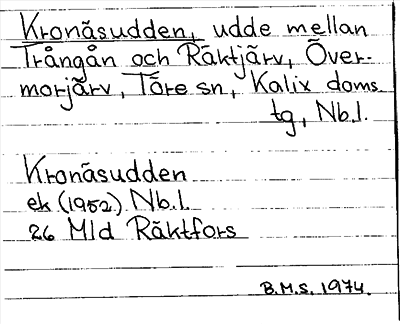 Kronäsudden, udde mellan
Trångån och Räktjärv, Över-
morjärv, Töre sn, Kalix doms.
tg, Nb.l.
Kronäsudden
ek (1952) Nb.l.
26 Mld Räktfors
B.M.S. 1974.